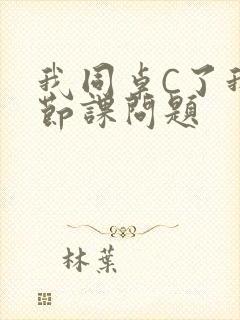 我同卓C了我
節課問題
林葉